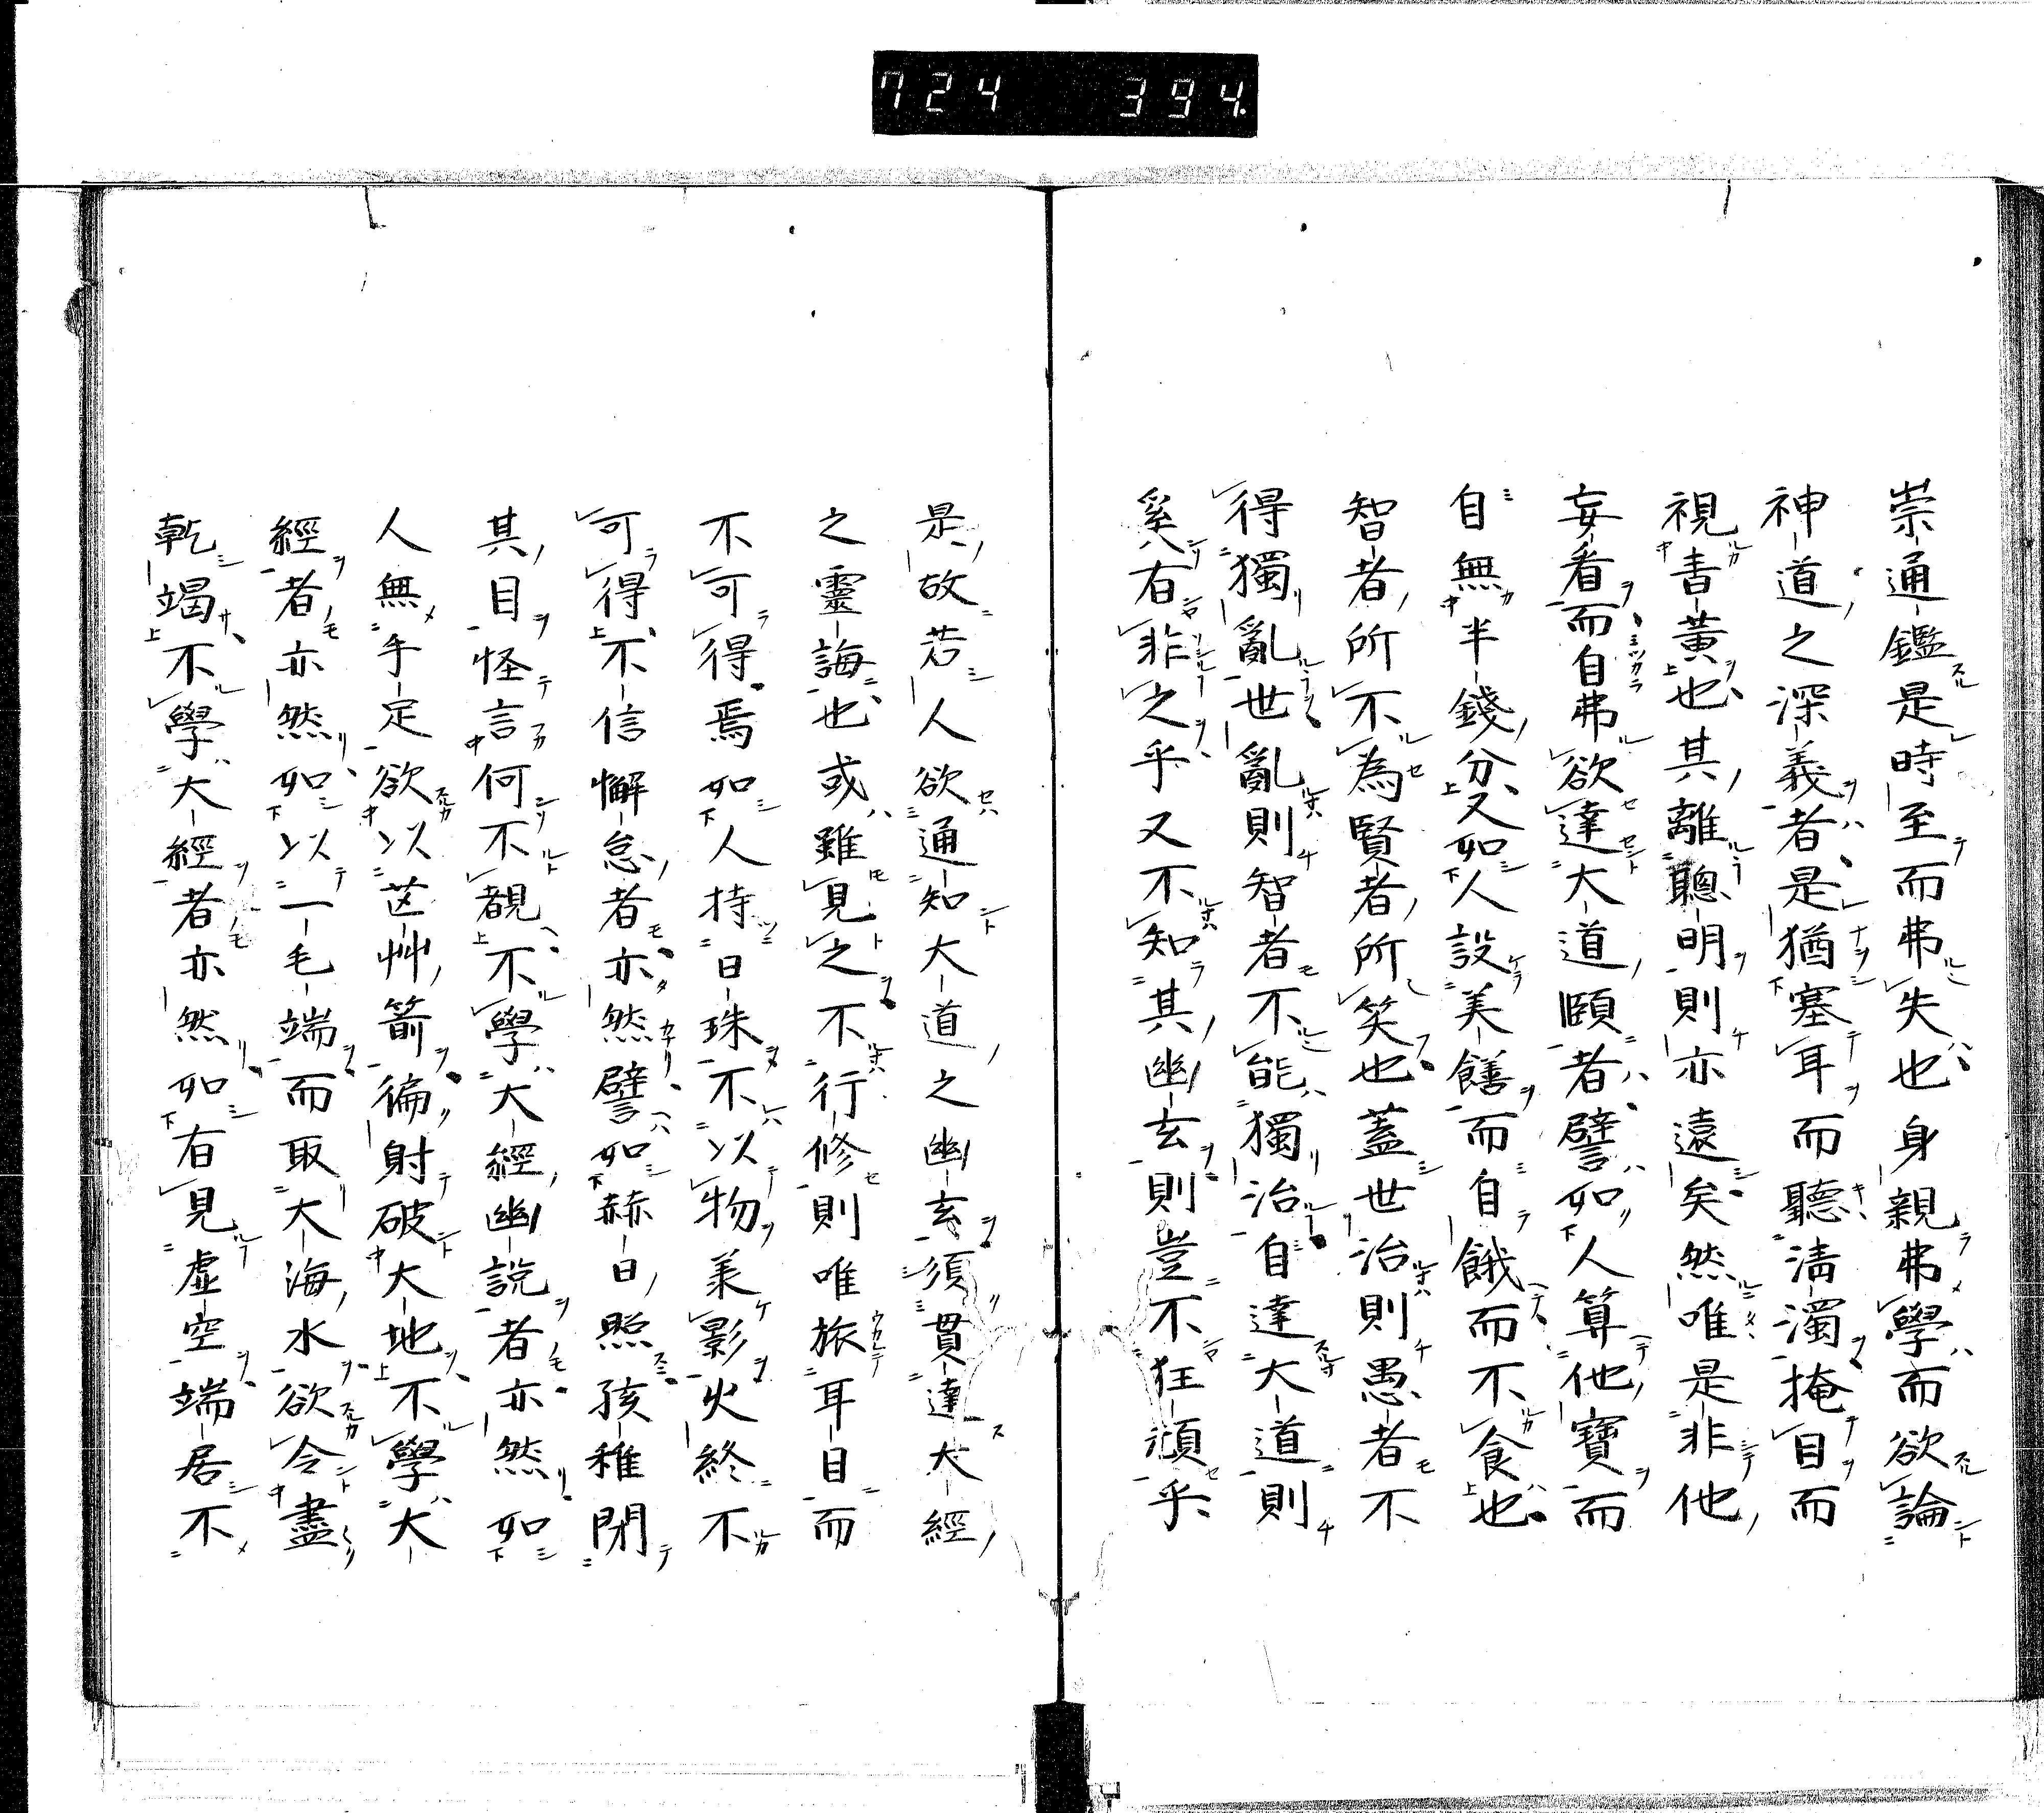 724 394.
崇通鑑是時至而弗失也身親弗學而欲論
神道之深義者是猶塞耳而聽淸濁掩目而
視青黃也其離聰明則亦遠矣然唯是非他
妄看而自弗欲達大道頤者譬如人算他寶而
自無半錢分又如人設美饍而自餓而不食也
智者所不為賢者所笑也蓋世治則愚者不
得獨亂世亂則智者不能獨治自達大道則
奚有非之乎又不知其幽玄則豈不狂頑乎
是故若人欲通知大道之幽玄須貫達大經
之靈誨也或雖見之不行修則唯旅耳目而
不可得焉如人持日珠不以物美影火終不
可得不信懈怠者亦然譬如赫日照孩稚閉
其目怪言何不覩不學大經幽說者亦然如
人無手定欲以芒艸箭徧射破大地不學大
經者亦然如以一毛端而取大海水欲令盡
乾竭不學大經者亦然如有見虛空端居不